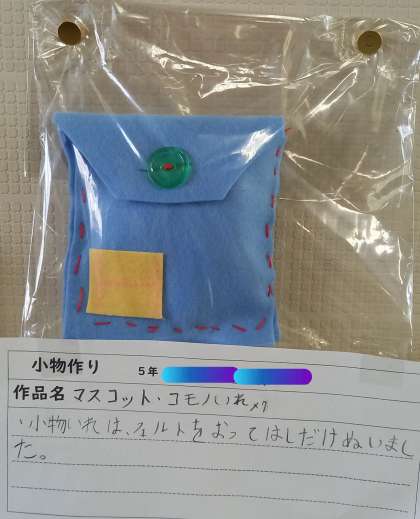 小物作り 5年
作品名 マスコット・コモノいれ
・小物いれは、フェルトをおってはしだけぬいまし
た。